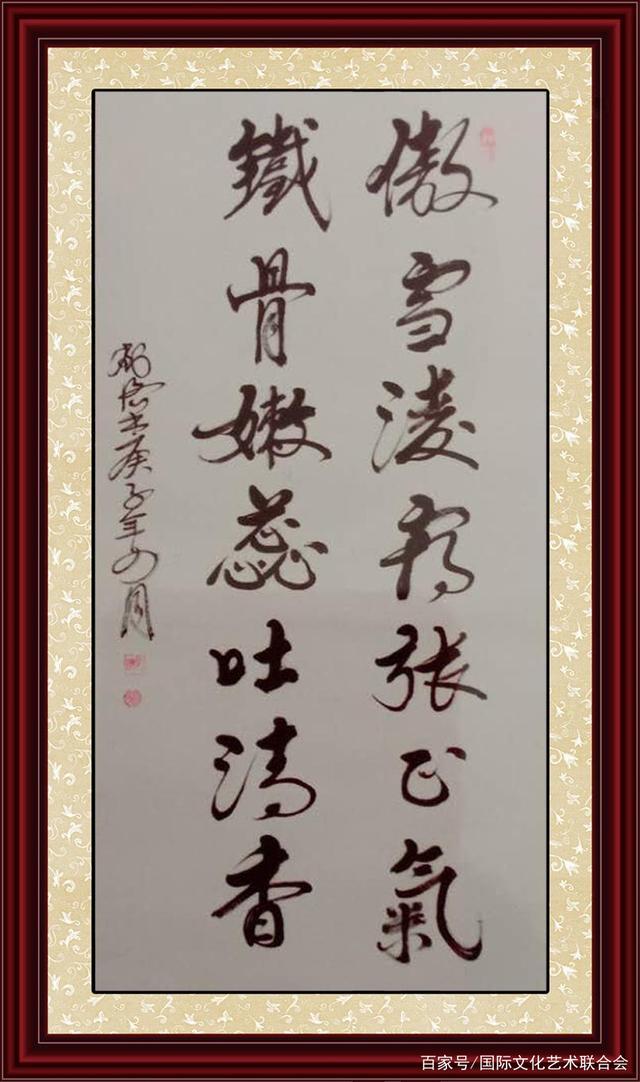 傲雪凌霜張正氣
鐵骨嫩蕊吐清香
庚子年四月
百家号/国际文化艺术联合会